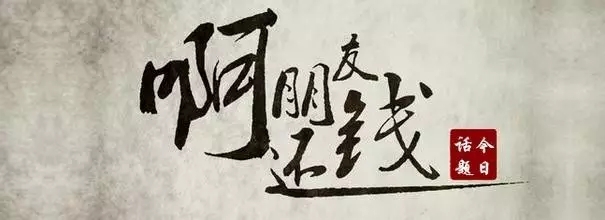 啊朋友还钱
今日
话题